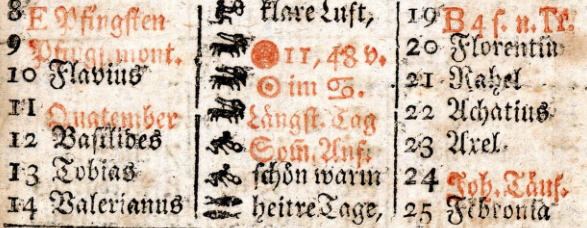 8 E Pfingsten
9 Pfingstmont.
10 Flavius
11 Quatember
12 Basilides
13 Tobias
14 Valerianus
klare Luft,
11, 48 v.
☉ im ♋.
Längst. Tag
Som̃. Anf.
schön warm
heitre Tage,
19 B 4 s. n. Tr.
20 Florentin
21 Rahel
22 Achatius
23 Axel
24 Joh. Täuf.
25 Febronia